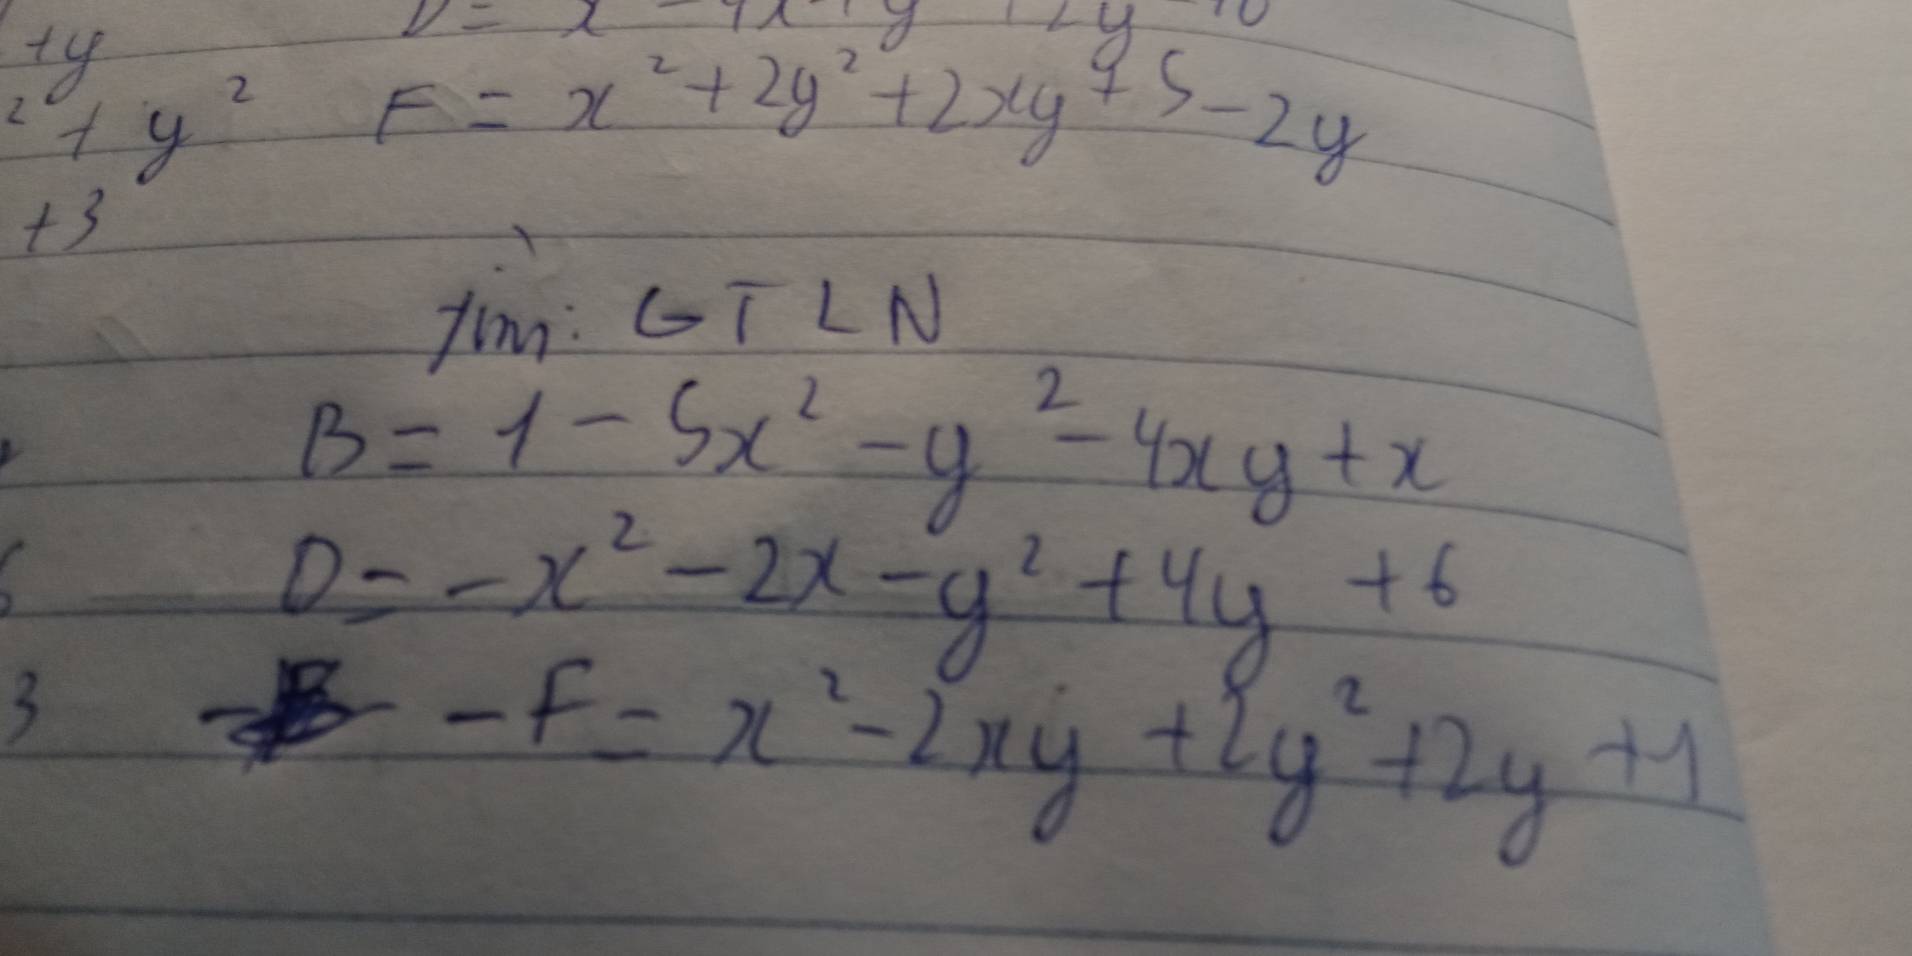 +y
² + y² F = x² + 2y² + 2xy + 5 - 2y
+3
Tìm: GTLN
B = 1 - 5x² - y² - 4xy + x
D = - x² - 2x - y² + 4y + 6
3 - F = x² - 2xy + 2y² + 2y + 1